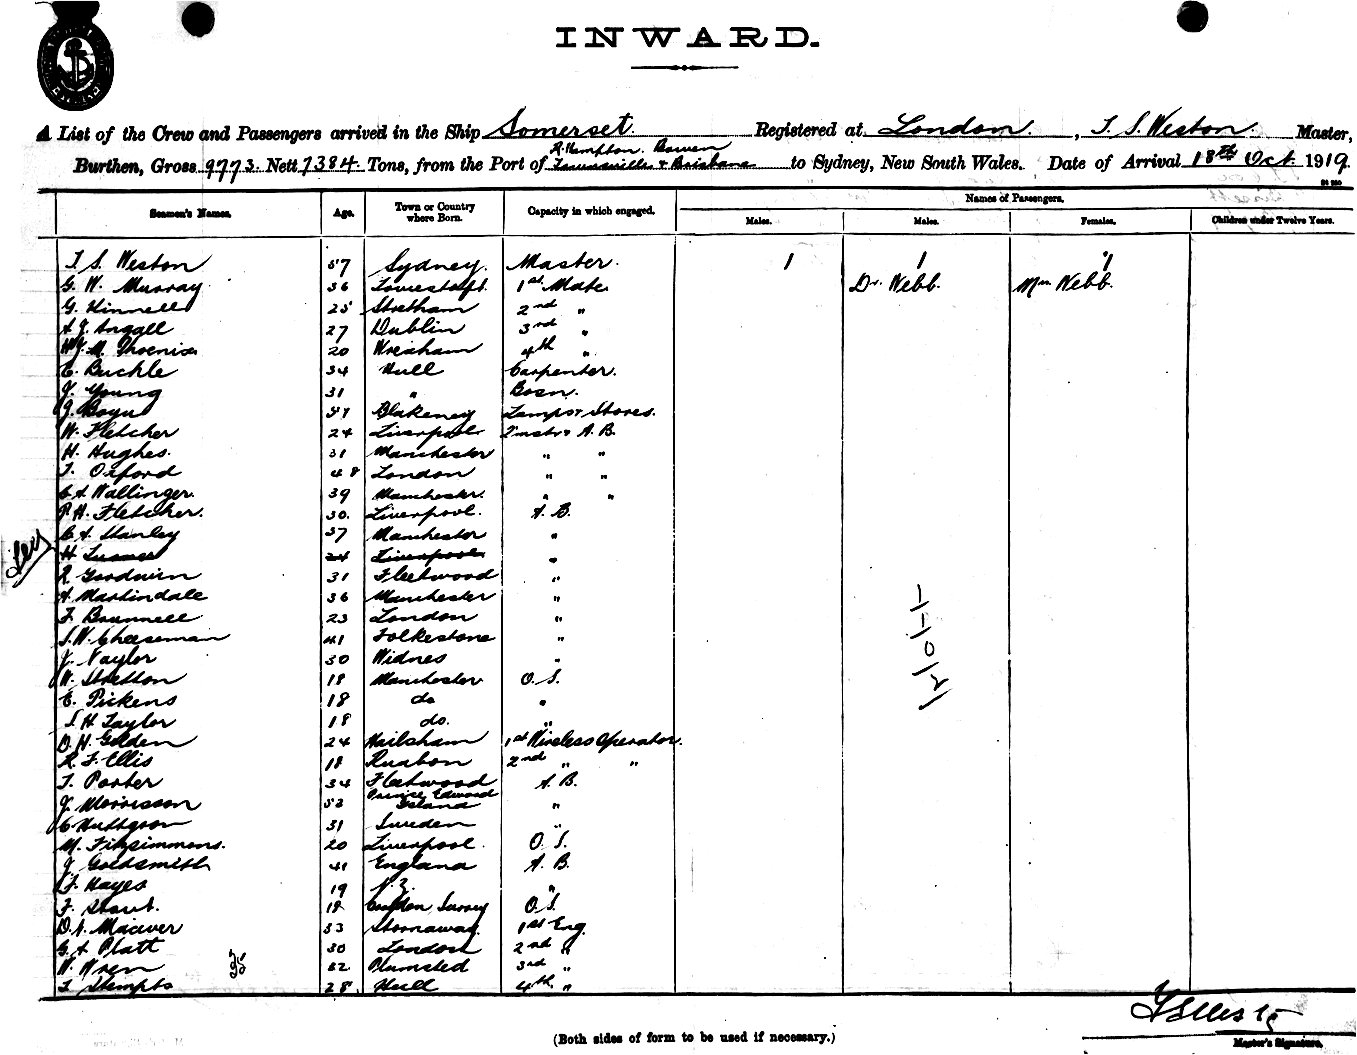 INWARD.
A List of the Crew and Passengers arrived in the Ship Somerset. Registered at London, T. S. Weston. Master,
R.Hampton Bowen
Burthen, Gross 9773. Nett 7384. Tons, from the Port of Townsville & Brisbane to Sydney, New South Wales. Date of Arrival 18th Oct. 1919.
Names of Passengers.
Seamen's Names. Age. Town or Country where Born. Capacity in which engaged. Males. Males. Females. Children under Twelve Years.
T. S. Weston 57 Sydney. Master. 1 1 1
G. W. Murray 36 Lowestoft. 1st Mate Dr. Webb. Mrs Webb.
G. Kinnell 25 Stretham 2nd "
A. J. Angall 27 Dublin 3rd "
20 Wrexham 4th "
E. Buckle 34 Hull Carpenter.
J. Young 31 " Bosn.
J. 51 Blakeney Lamps & Stores.
W. Fletcher 24 Liverpool A. B.
H. Hughes. 31 Manchester " "
T. Oxford 48 London " "
C A Wallinger. 39 Manchester. " "
P. H. Fletcher. 30. Liverpool. A. B.
C A Stanley 37 Manchester "
H 24 Liverpool "
R Goodwin 31 Fleetwood "
A. Martindale 36 Manchester "
F. Brunnell 23 London "
S. W. Cheeseman 41 Folkestone "
J. Naylor 30 Widnes "
W. Stretton 18 Manchester O. S.
E. Pickens 18 do "
S. H Taylor 18 do. "
D. H. Golden 24 Hailsham 1st Wireless Operator.
R. F. Ellis 18 Ruabon 2nd " "
T. Porter 34 Fleetwood A. B.
J. Morrisson 52 Prince Edward Island "
C 31 Sweden "
M. Fitzsimmons. 20 Liverpool. O. S.
J. Goldsmith 41 England A. B.
F. Hayes 19 N.Z. "
F. 18 Surrey O.S.
D. A. Maciver 33 Stornaway. 1st Eng.
G. A. Platt 30 London 2nd "
W. Wren 32 Plumsted 3rd "
T. 28 Hull 4th "
(Both sides of form to be used if necessary.)
Master's Signature.